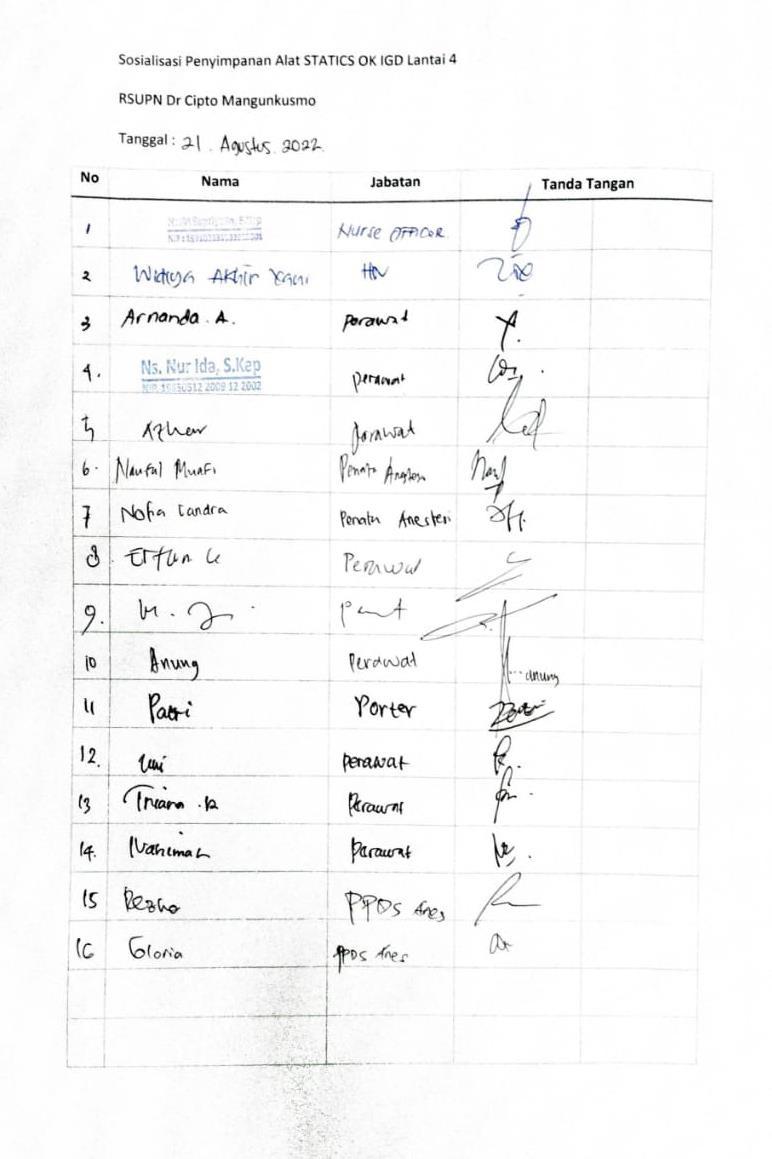 Sosialisasi Penyimpanan Alat STATICS OK IGD Lantai 4
RSUPN Dr Cipto Mangunkusmo
Tanggal : 21. Agustus. 2022.
No Nama Jabatan Tanda Tangan
1 Nurse OFFICER
2 Widiya Akhir Yani HN
3 Arnanda. A. perawat
4. Ns. Nur Ida, S.Kep perawat
2009 12 2002
5 Azhar perawat
6. Naufal Muafi Penata
7 Nofia Candra Penata Anestesi
8 Perawat
9.
10 Anung Perawat anung
11 Patri Porter
12. Uni perawat
13 Triana .R Perawat
14. perawat
15 PPDS Anes
16 Gloria PPDS Anes